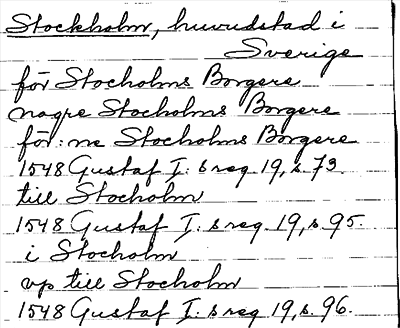 Stockholm, huvudstad i
Sverige
för Stocholms Borgere
nagre Stocholms Borgere
för:ne Stocholms Borgere
1548 Gustaf I:s reg 19, s. 73.
till Stocholm
1548 Gustaf I:s reg. 19, s. 95.
i Stocholm
vp till Stocholm
1548 Gustaf I:s reg. 19, s. 96.